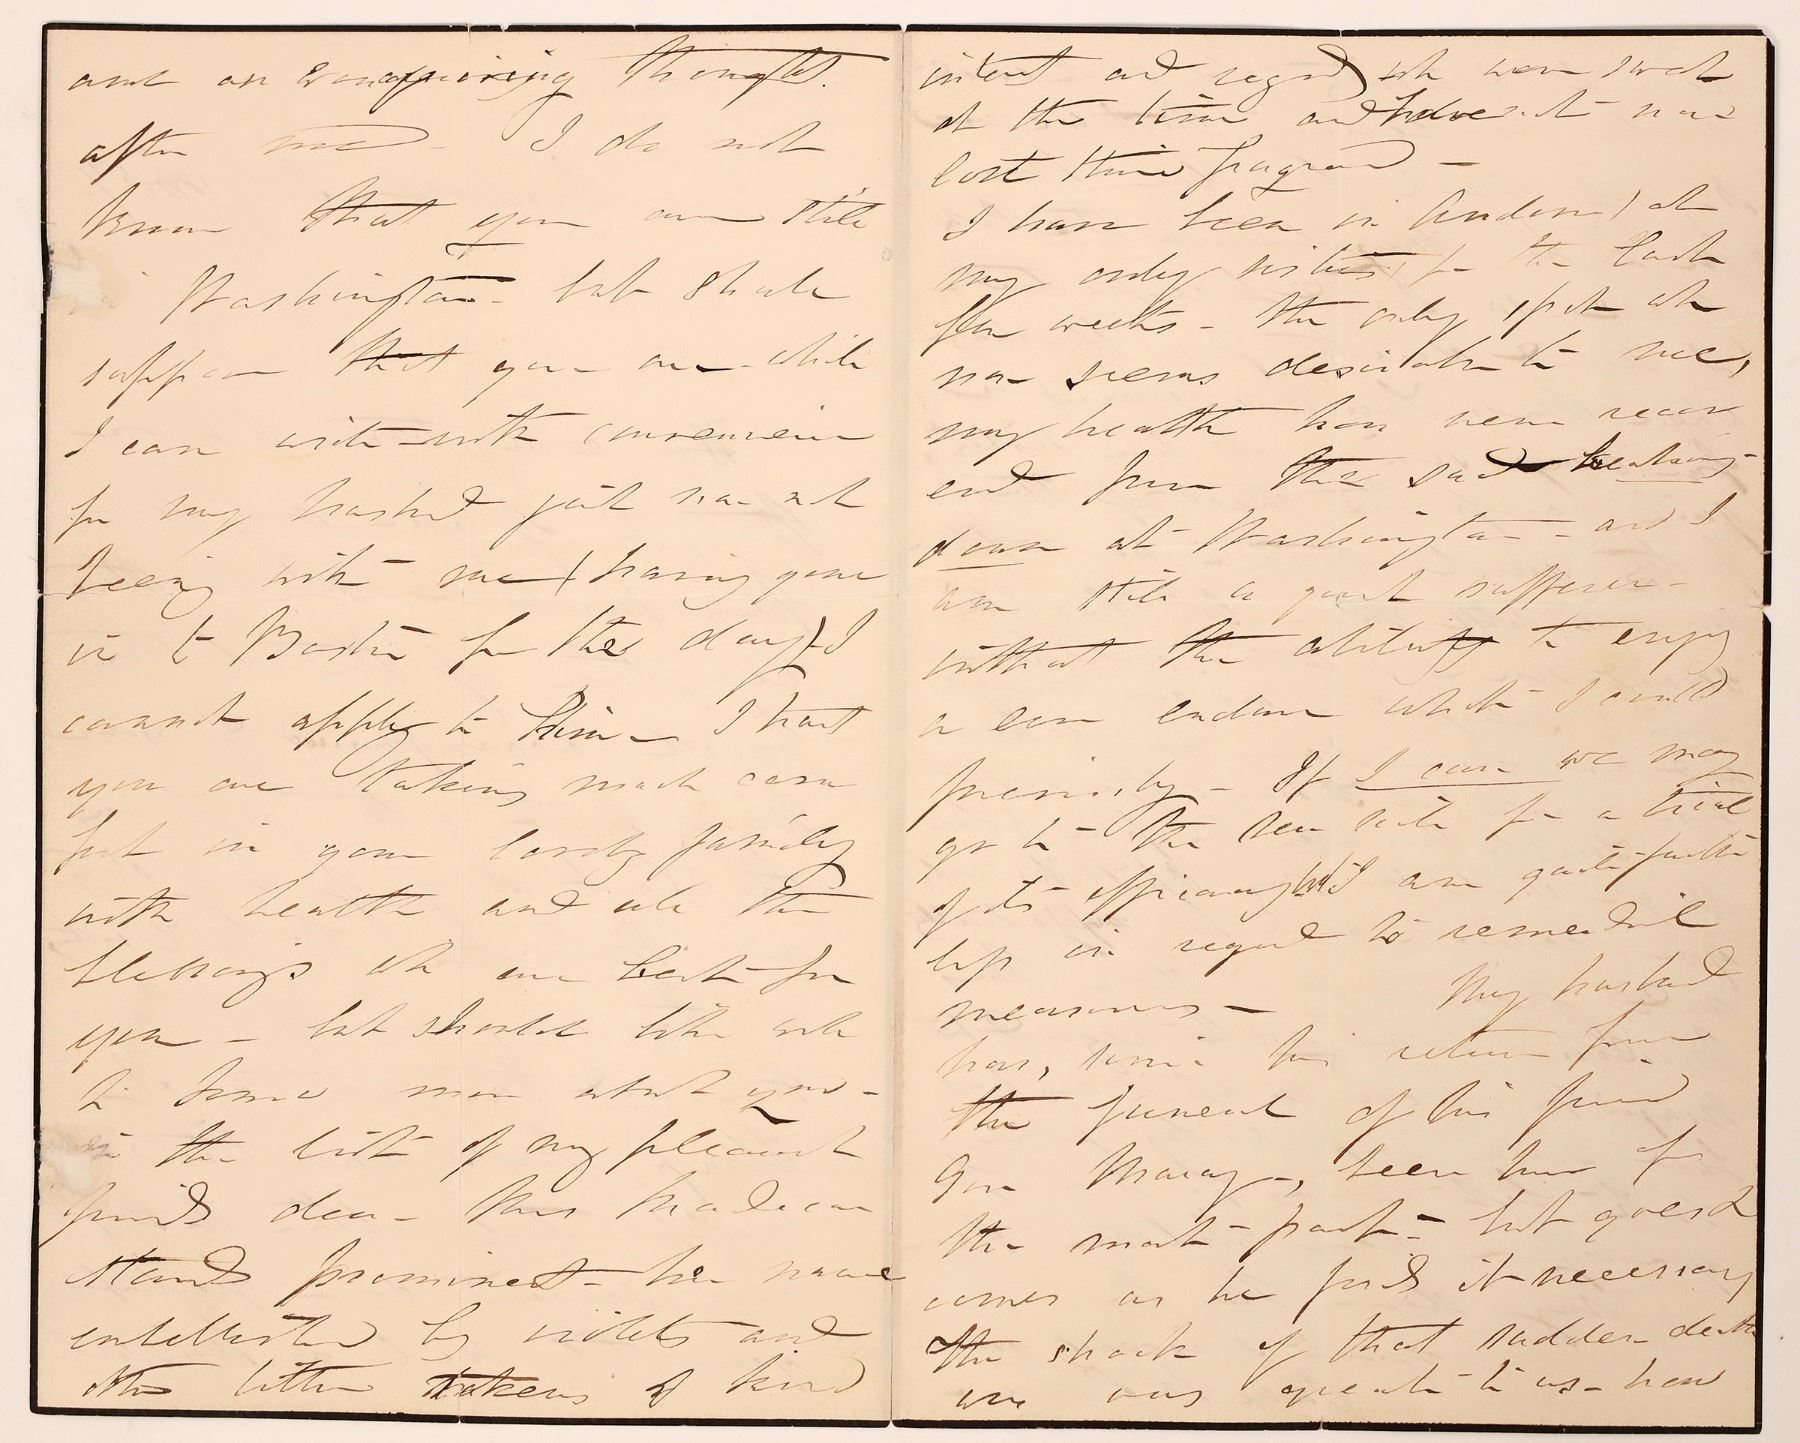 and an enquiring thought.
after me - I do not
know that you are still
in Washington - but shall
suppose that you are - while
I can write with convenience
for my husband just now not
being with me (having gone
in to Boston for the day) I
cannot apply to him - I trust
you are taking much care
but in your lovely family
with health and all the
blessings wh are best for
you - but should like well
to know more about you -
in the list of my pleasant
friends dear Mrs
stands prominent - her name
embellished by violets and
other little tokens of kind
interest and regard wh were sweet
at the time and have not now
lost their fragrance -
I have been in Andover, at
my only sister's for the last
few weeks - the only spot wh
now seems desirable to me,
my health has never recov
ered from the sad breaking
down at Washington - and I
am still a great sufferer -
without the ability to enjoy
or even endure what I could
previously - If I can we may
go to the sea side for a trial
of its efficacy but I am quite faith
less in regard to remedial
measures - My husband
has, since his return from
the funeral of his friend
Gov Marcy -, been here for
the most part - but goes &
comes as he finds it necessary
the shock of that sudden death
was very great to us - how